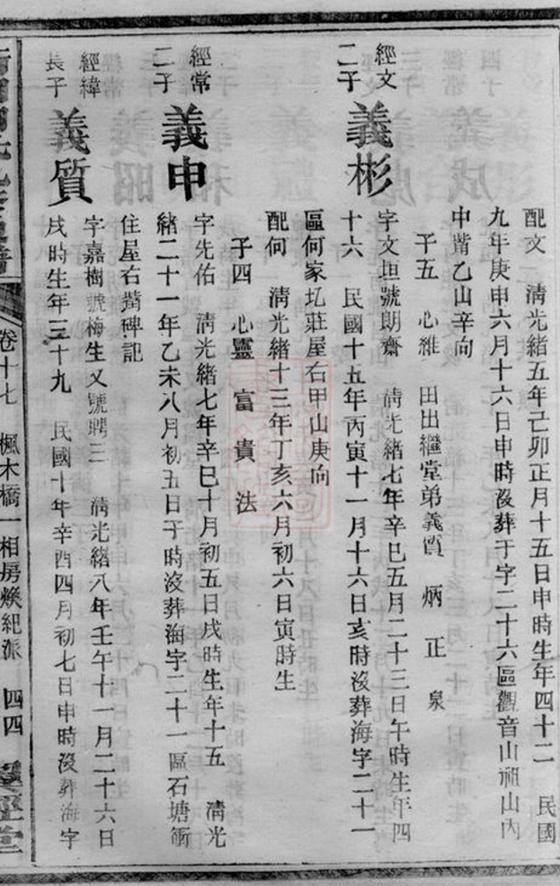 配文 清光緒五年己卯正月十五日申時生年四十二 民國
九年庚申六月十六日申時沒葬于字二十六區觀音山祖山內
中背乙山辛向
子五 心維 田出繼堂弟義質 炳 正 泉
經文
二子
義彬
字文垣號朗齋 清光緒七年辛巳五月二十三日午時生年四
十六 民國十五年丙寅十一月十六日亥時沒葬海字二十一
區何家圠莊屋右甲山庚向
配何 清光緒十三年丁亥六月初六日寅時生
子四 心靈 富 貴 法
經常
二子
義申
字先佑 清光緒七年辛巳十月初五日戌時生年十五 清光
緒二十一年乙未八月初五日子時沒葬海字二十一區石塘衝
住屋右背碑記
經緯
長子
義質
字嘉樹號梅生又號聘三 清光緒八年壬午十一月二十六日
戌時生年三十九 民國十年辛酉四月初七日申時沒葬海字
卷十七 楓木橋一相房煥紀派 四四